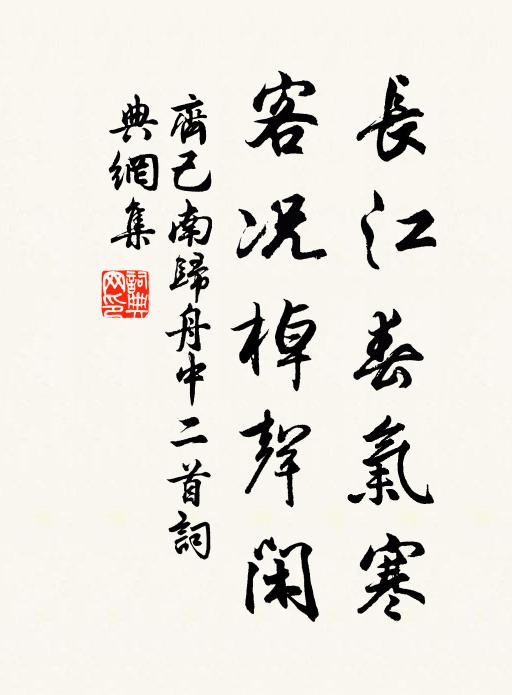 長江春氣寒
客況棹聲閑
齊己南歸舟中二首詞
典網集
詞典
网印